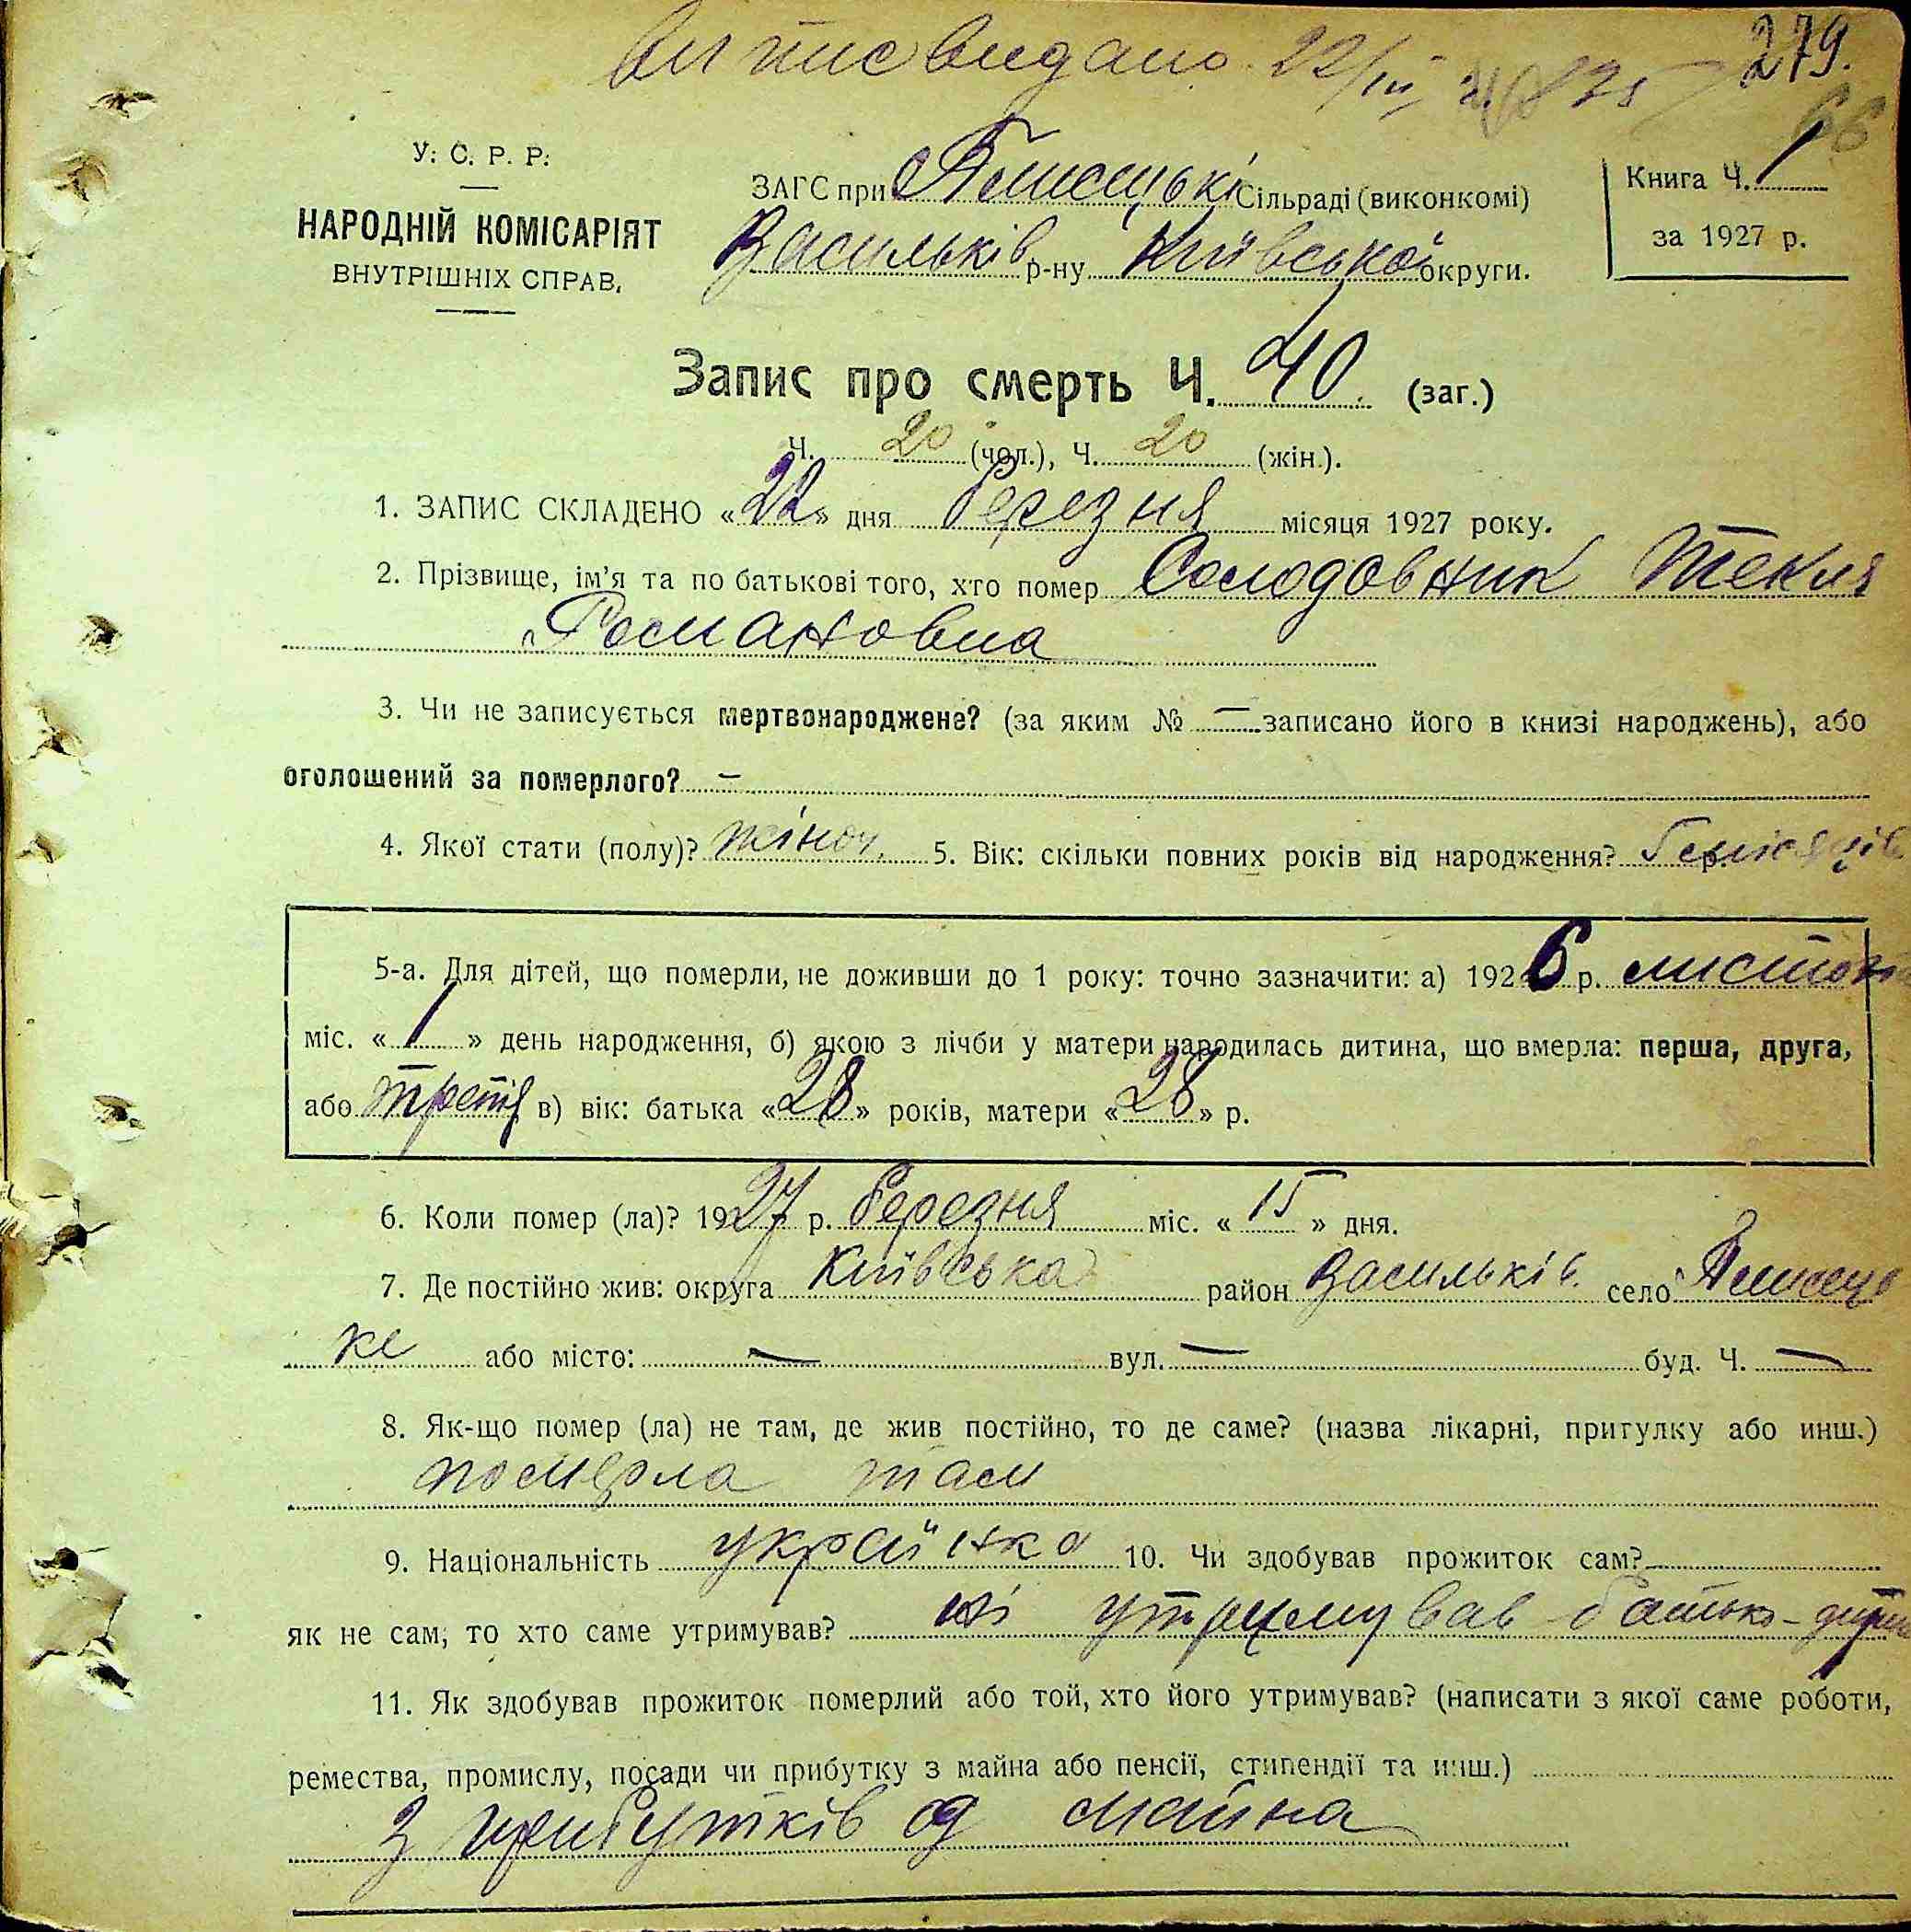 Випис видано 22/III
279.
66
У. С. Р. Р.
НАРОДНІЙ КОМІСАРІЯТ
ВНУТРІШНІХ СПРАВ.
ЗАГС при Плисецькі Сільраді (виконкомі)
Васильків р-ну Київської округи.
Книга Ч. 1
за 1927 р.
Запис про смерть Ч. 40. (заг.)
Ч. 20 (чол.), Ч. 20 (жін.).
1. ЗАПИС СКЛАДЕНО «22» дня березня місяця 1927 року.
2. Прізвище, ім'я та по батькові того, хто помер Солодовник Текля
Романовна
3. Чи не записується мертвонароджене? (за яким № — записано його в книзі народжень), або
оголошений за померлого? —
4. Якої стати (полу)? жіноч. 5. Вік: скільки повних років від народження? 5 місяців
5-а. Для дітей, що померли, не доживши до 1 року: точно зазначити: а) 1926 р. листопа
міс. «1» день народження, б) якою з лічби у матери народилась дитина, що вмерла: перша, друга,
або третя в) вік: батька «28» років, матери «28» р.
6. Коли помер (ла)? 1927 р. березня міс. «15» дня.
7. Де постійно жив: округа Київська район Васильків. село Плисець
ке або місто: — вул. — буд. Ч. —
8. Як-що помер (ла) не там, де жив постійно, то де саме? (назва лікарні, пригулку або инш.)
померла там
9. Національність українка 10. Чи здобував прожиток сам?
як не сам, то хто саме утримував? ні утримував батько -
11. Як здобував прожиток померлий або той, хто його утримував? (написати з якої саме роботи,
ремества, промислу, посади чи прибутку з майна або пенсії, стипендії та инш.)
з прибутків од майна